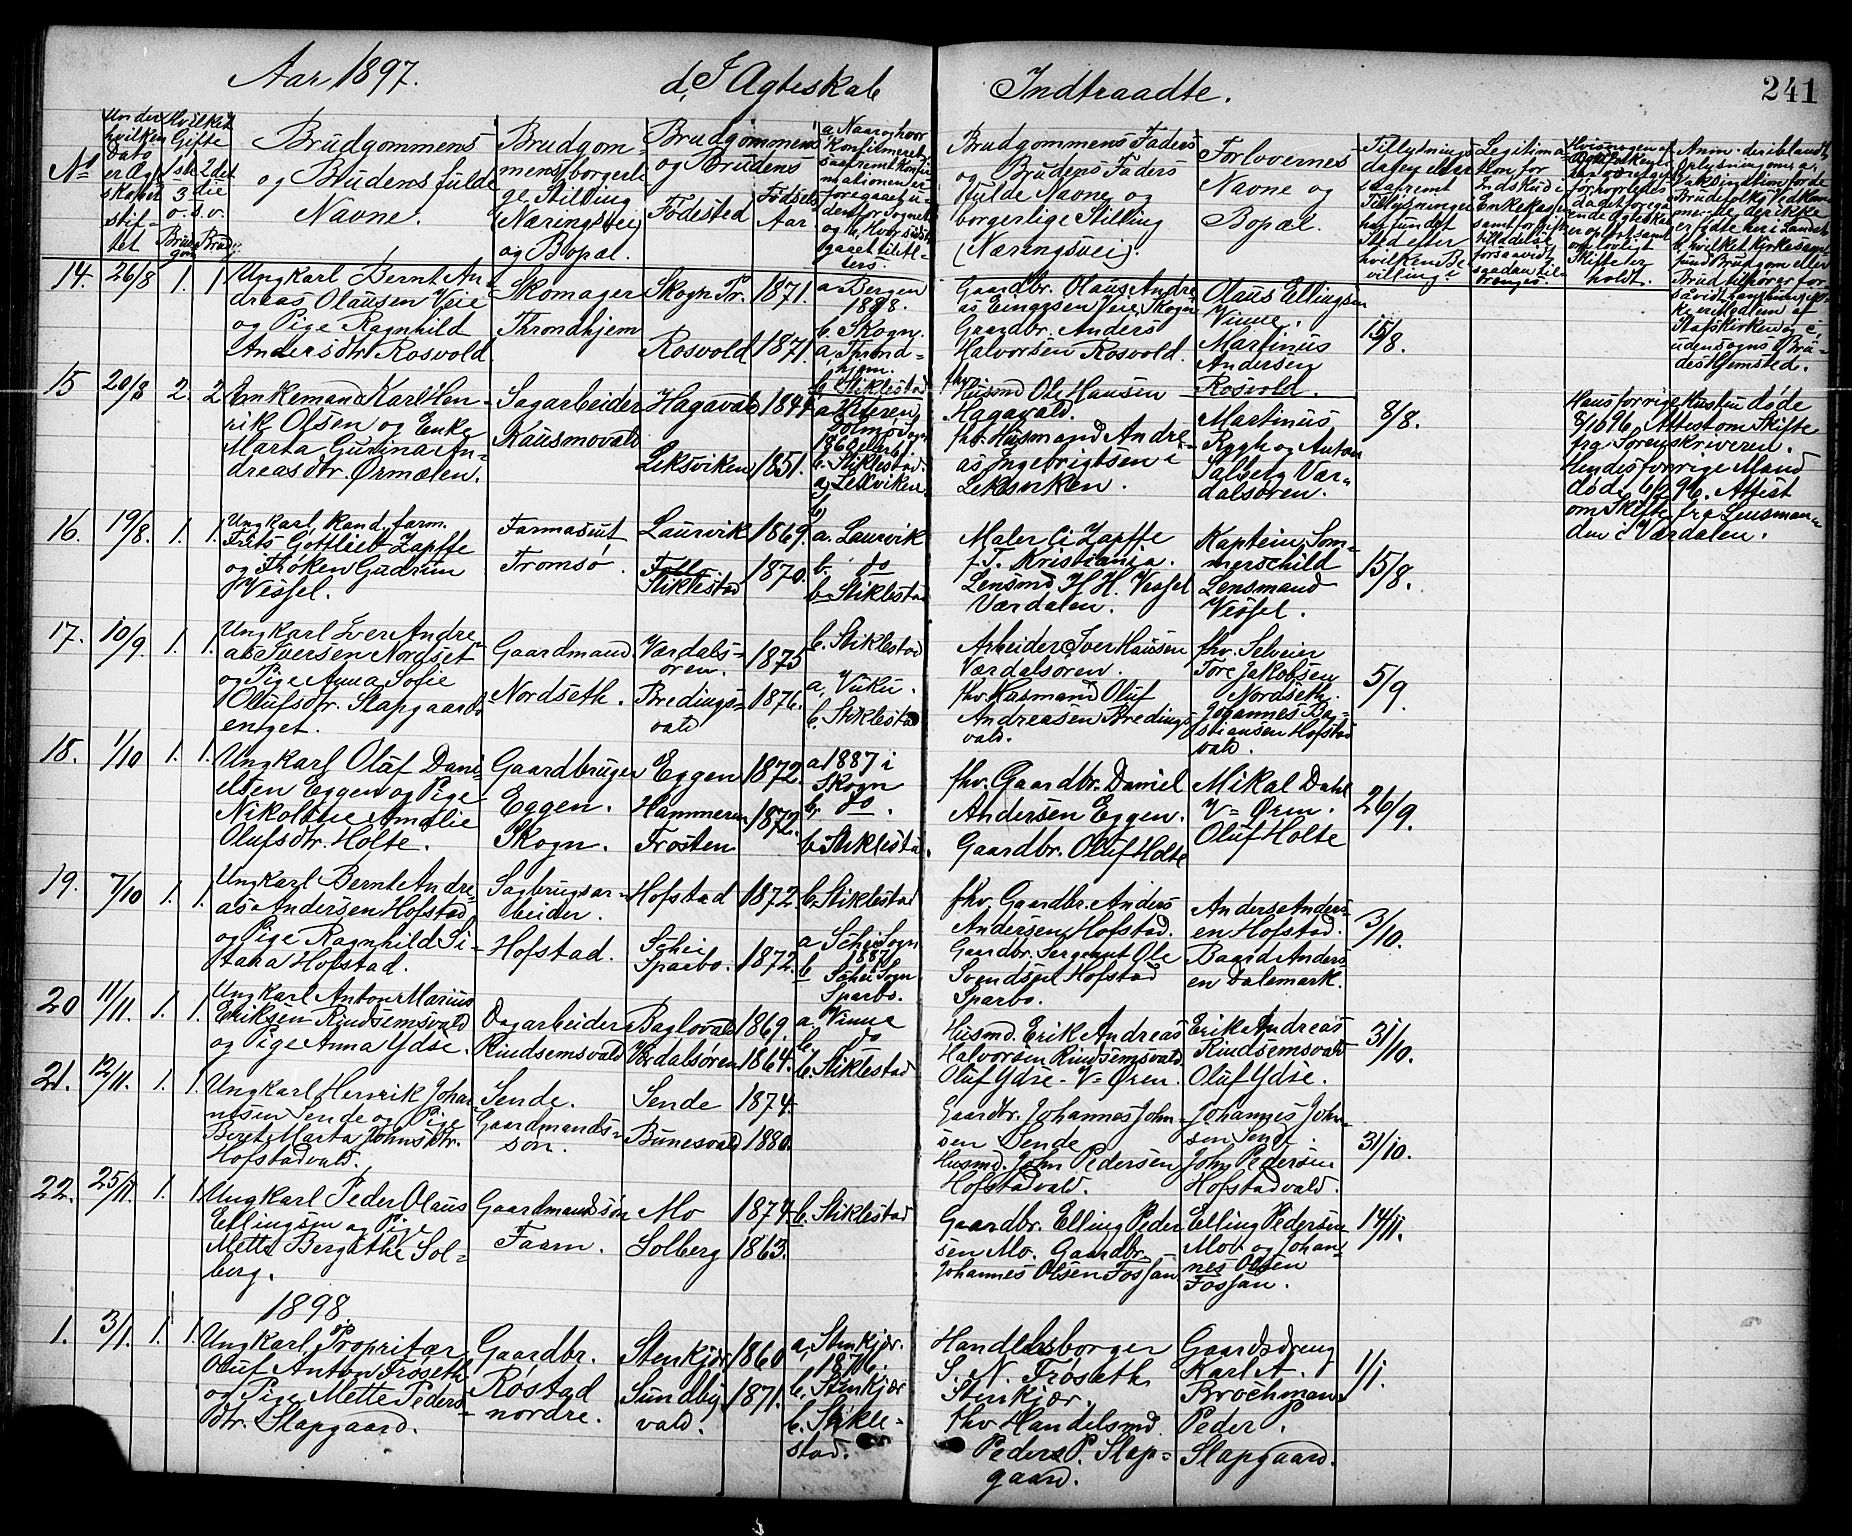 Aar 1897.
d, I Ægteskab
Indtraadte.
241
No
Under hvilken Dato er Ægteskabet stiftet
Hvilket Gifte 1ste 2det 3die o.s.v. Brudgom Brud
Brudgommens og Brudens fulde Navne.
Brudgommens borgerlige Stilling (Næringsvei) og Bopæl.
Brudgommens og Brudens
Fødested
Fødsels Aar
a, Naar og hvor Konfirmeret,
Brudgommens Faders og Brudens Faders fulde Navne og borgerlige Stilling (Næringsvei).
Forlovernes Navne og Bopæl.
14. 26/8 1. 1
Ungkarl Bernt Andreas Olausen Veie
og Pige Ragnhild
Andersdtr. Rosvold.
Skomager
Throndhjem
Skogn Pr.
Rosvold
1871.
1871.
a. Bergen
1888.
b. Skogn.
a. Trondhjem.
b. Stiklestad
Gaardbr. Olaus Andreas Einarsen Veie, Skogn
Gaardbr. Anders
Halvorsen Rosvold.
Olaus Ellingsen
Vinne.
Martinus
Andersen
Rosvold.
15/8.
15 20/8 2. 2
Enkemand Karl Henrik Olsen og Enke
Marta Gurina Andreasdtr. Ørmælen.
Sagarbeider
Kausmovald
Hagavald
Leksviken
1851.
b. Stiklestad.
a, Leksviken
fhv. Husmd Ole Hansen
Hagavald.
fhv. Husmand Andreas Ingebrigtsen i
Leksviken.
Martinus
Rygh og Anton
Salberg Værdalsøren.
8/8.
Hans forrige Hustru døde
Attest om Skifte
fra Sorenskriveren.
Hendes forrige Mand
død 96. Attest
om Skifte fra Lensmanden i Værdalen.
16. 19/8. 1. 1.
Ungkarl, kand. farm.
Frits Gottlieb Zapffe
og Frøken Gudrun
Wessel.
Farmaseut
Tromsø.
Laurvik
Stiklestad
1869.
1870.
a. Laurvik
b. do
b. Stiklestad
Maler C. Zapffe
f. T. Kristiania.
Lensmd H. H. Wessel
Værdalen.
Kaptein Sommerschild
Lensmand
Wessel.
15/8.
17. 10/9. 1. 1.
Ungkarl Iver Andreas Iversen Nordset
og Pige Anna Sofie
Olufsdtr. Slapgaardsenget.
Gaardmand.
Nordseth.
Værdalsøren.
Bredingsvald
1875
1876.
b. Stiklestad
a, Vuku.
b. Stiklestad
Arbeider Iver Hansen
Værdalsøren.
fhv. Husmand Oluf
Andreasen Bredingsvald.
fhv. Selveier
Tore Jakobsen
Nordseth.
Johannes Bastiansen Hofstadvald.
5/9.
18. 1/10 1. 1.
Ungkarl Oluf Danielsen Eggen og Pige
Nikoline Amalie
Olufsdtr. Holte.
Gaardbruger
Eggen.
Skogn.
Eggen
Hammeren
Frosten
1872.
1872.
a 1887 i
Skogn
b, do.
b. Stiklestad.
fhv. Gaardbr. Daniel
Andersen Eggen.
Gaardbr. Oluf Holte
Mikal Dahl
V= Øren.
Oluf Holte
26/9.
19. 7/10 1. 1.
Ungkarl Bernt Andreas Andersen Hofstad,
og Pige Ragnhild Sitana Hofstad.
Sagbrugsarbeider.
Hofstad.
Hofstad
Schei
Sparbo.
1872
1872.
b. Stiklestad
a Schei Sogn
1887
b Schei Sogn
Sparbo.
fhv. Gaardbr. Anders
Andersen Hofstad.
Gaardbr. Sergeant Ole
Svendsen Hofstad
Sparbo.
Anders Andersen Hofstad.
Baard Andersen Dalemark.
3/10.
20 11/11. 1. 1.
Ungkarl Anton Marius
Eriksen Rindsemsvald
og Pige Anna Ydse.
Dagarbeider
Rindsemsvald
Baglovald
Værdalsøren
1869.
1864.
a. Vinne
b. do
b. Stiklestad
Husmd. Erik Andreas
Halvorsen Rindsemsvald.
Oluf Ydse - V= Øren.
Erik Andreas
Rindsemsvald
Oluf Ydse.
31/10.
21. 12/11. 1. 1.
Ungkarl Henrik Johannesen Sende og Pige
Beret Marta Johnsdtr.
Hofstadvald.
Sende.
Gaardmandssøn.
Sende
Bunesvald
1874.
1880.
Gaardbr. Johannes Johnsen Sende
Husmd. John Pedersen
Hofstadvald.
Johannes Johnsen Sende.
John Pedersen
Hofstadvald.
31/10.
22. 25/11. 1. 1.
Ungkarl Peder Olaus
Ellingsen og Pige
Mette Bergithe Solberg.
Gaardmandssøn
Faren.
Mo
Solberg
1874.
1863.
b. Stiklestad
Gaardbr. Elling Pedersen Mo. Gaardbr.
Johannes Olsen Fossan
Elling Pedersen
Mo. og Johannes Olsen
Fossan.
14/11.
1898
1. 3/1. 1. 1.
Ungkarl, Propritær
Oluf Anton Frøseth
og Pige Mette Pedersdtr. Slapgaard.
Gaardbr.
Røstad
nordre.
Stenkjær
Sundbyvald.
1860
1871.
a, Stenkjær.
1876.
b. Stenkjær
b. Stiklestad.
Handelsborger
S. N. Frøseth
Stenkjær.
fhv. Handelsmd
Peder P. Slapgaard.
Gaardsdreng
Karl A.
Brochman
Peder P.
Slapgaard.
1/1.